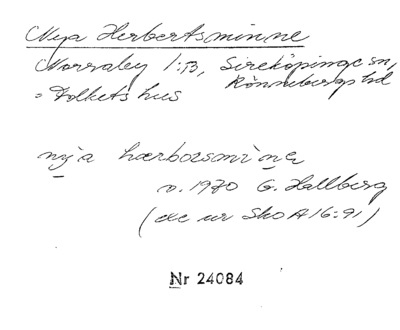 Nya Herbertsminne
Norraby 1:13, Sireköpinge sn,
Rönnebergs hd
= Folkets hus
nyja hærborsminə
v. 1970 G. Hallberg
(exc ur Sko A 16:91)
Nr 24084